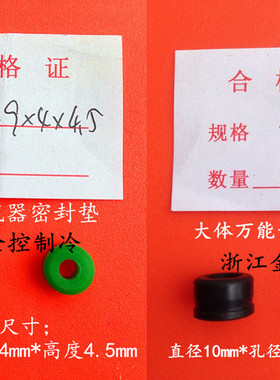 格 证
9×4×4.5
气器密封垫
控制冷
尺寸;
4mm*高度4.5mm
合 格
规格
数量
大体万能
浙江金
直径10mm*孔径